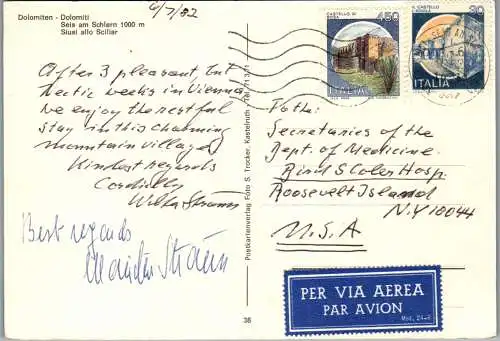 Dolomiten - Dolomiti
Seis am Schlern 1000 m
Siusi allo Sciliar
6/7/82
After 3 pleasant but
hectic weeks in Vienna
we enjoy the restful
stay in this charming
mountain village
Kindest regards
Cordially
Best regards
Postkartenverlag Foto S. Trocker, Kastelruth
38
CASTELLO DI
450
ITALIA
30
ITALIA
To the
Secretaries of the
Dept. of Medicine
Bird S Coler Hosp
Roosevelt Island
N.Y 10044
U.S.A
PER VIA AEREA
PAR AVION
Mod. 24-E